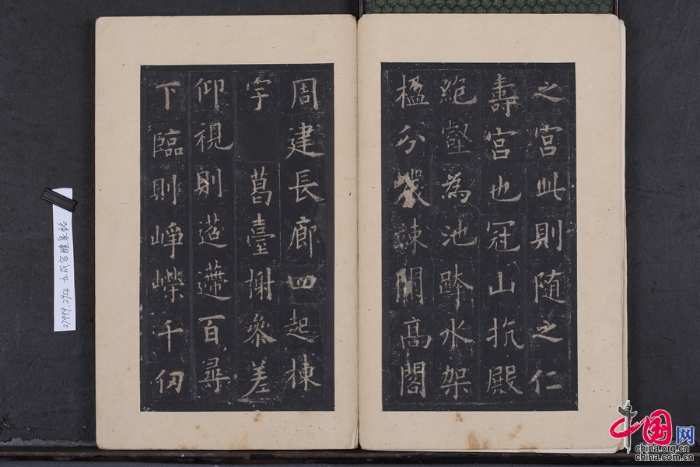 之宮此則随之仁
壽宮也冠山抗殿
絶壑為池跨水架
楹分巖竦闕高閣
周建長廊四起棟
宇 葛臺榭參差
仰視則迢遰百尋
下臨則崢嶸千仞
九成宮醴泉銘
中国网
china.org.cn
china.com.cn